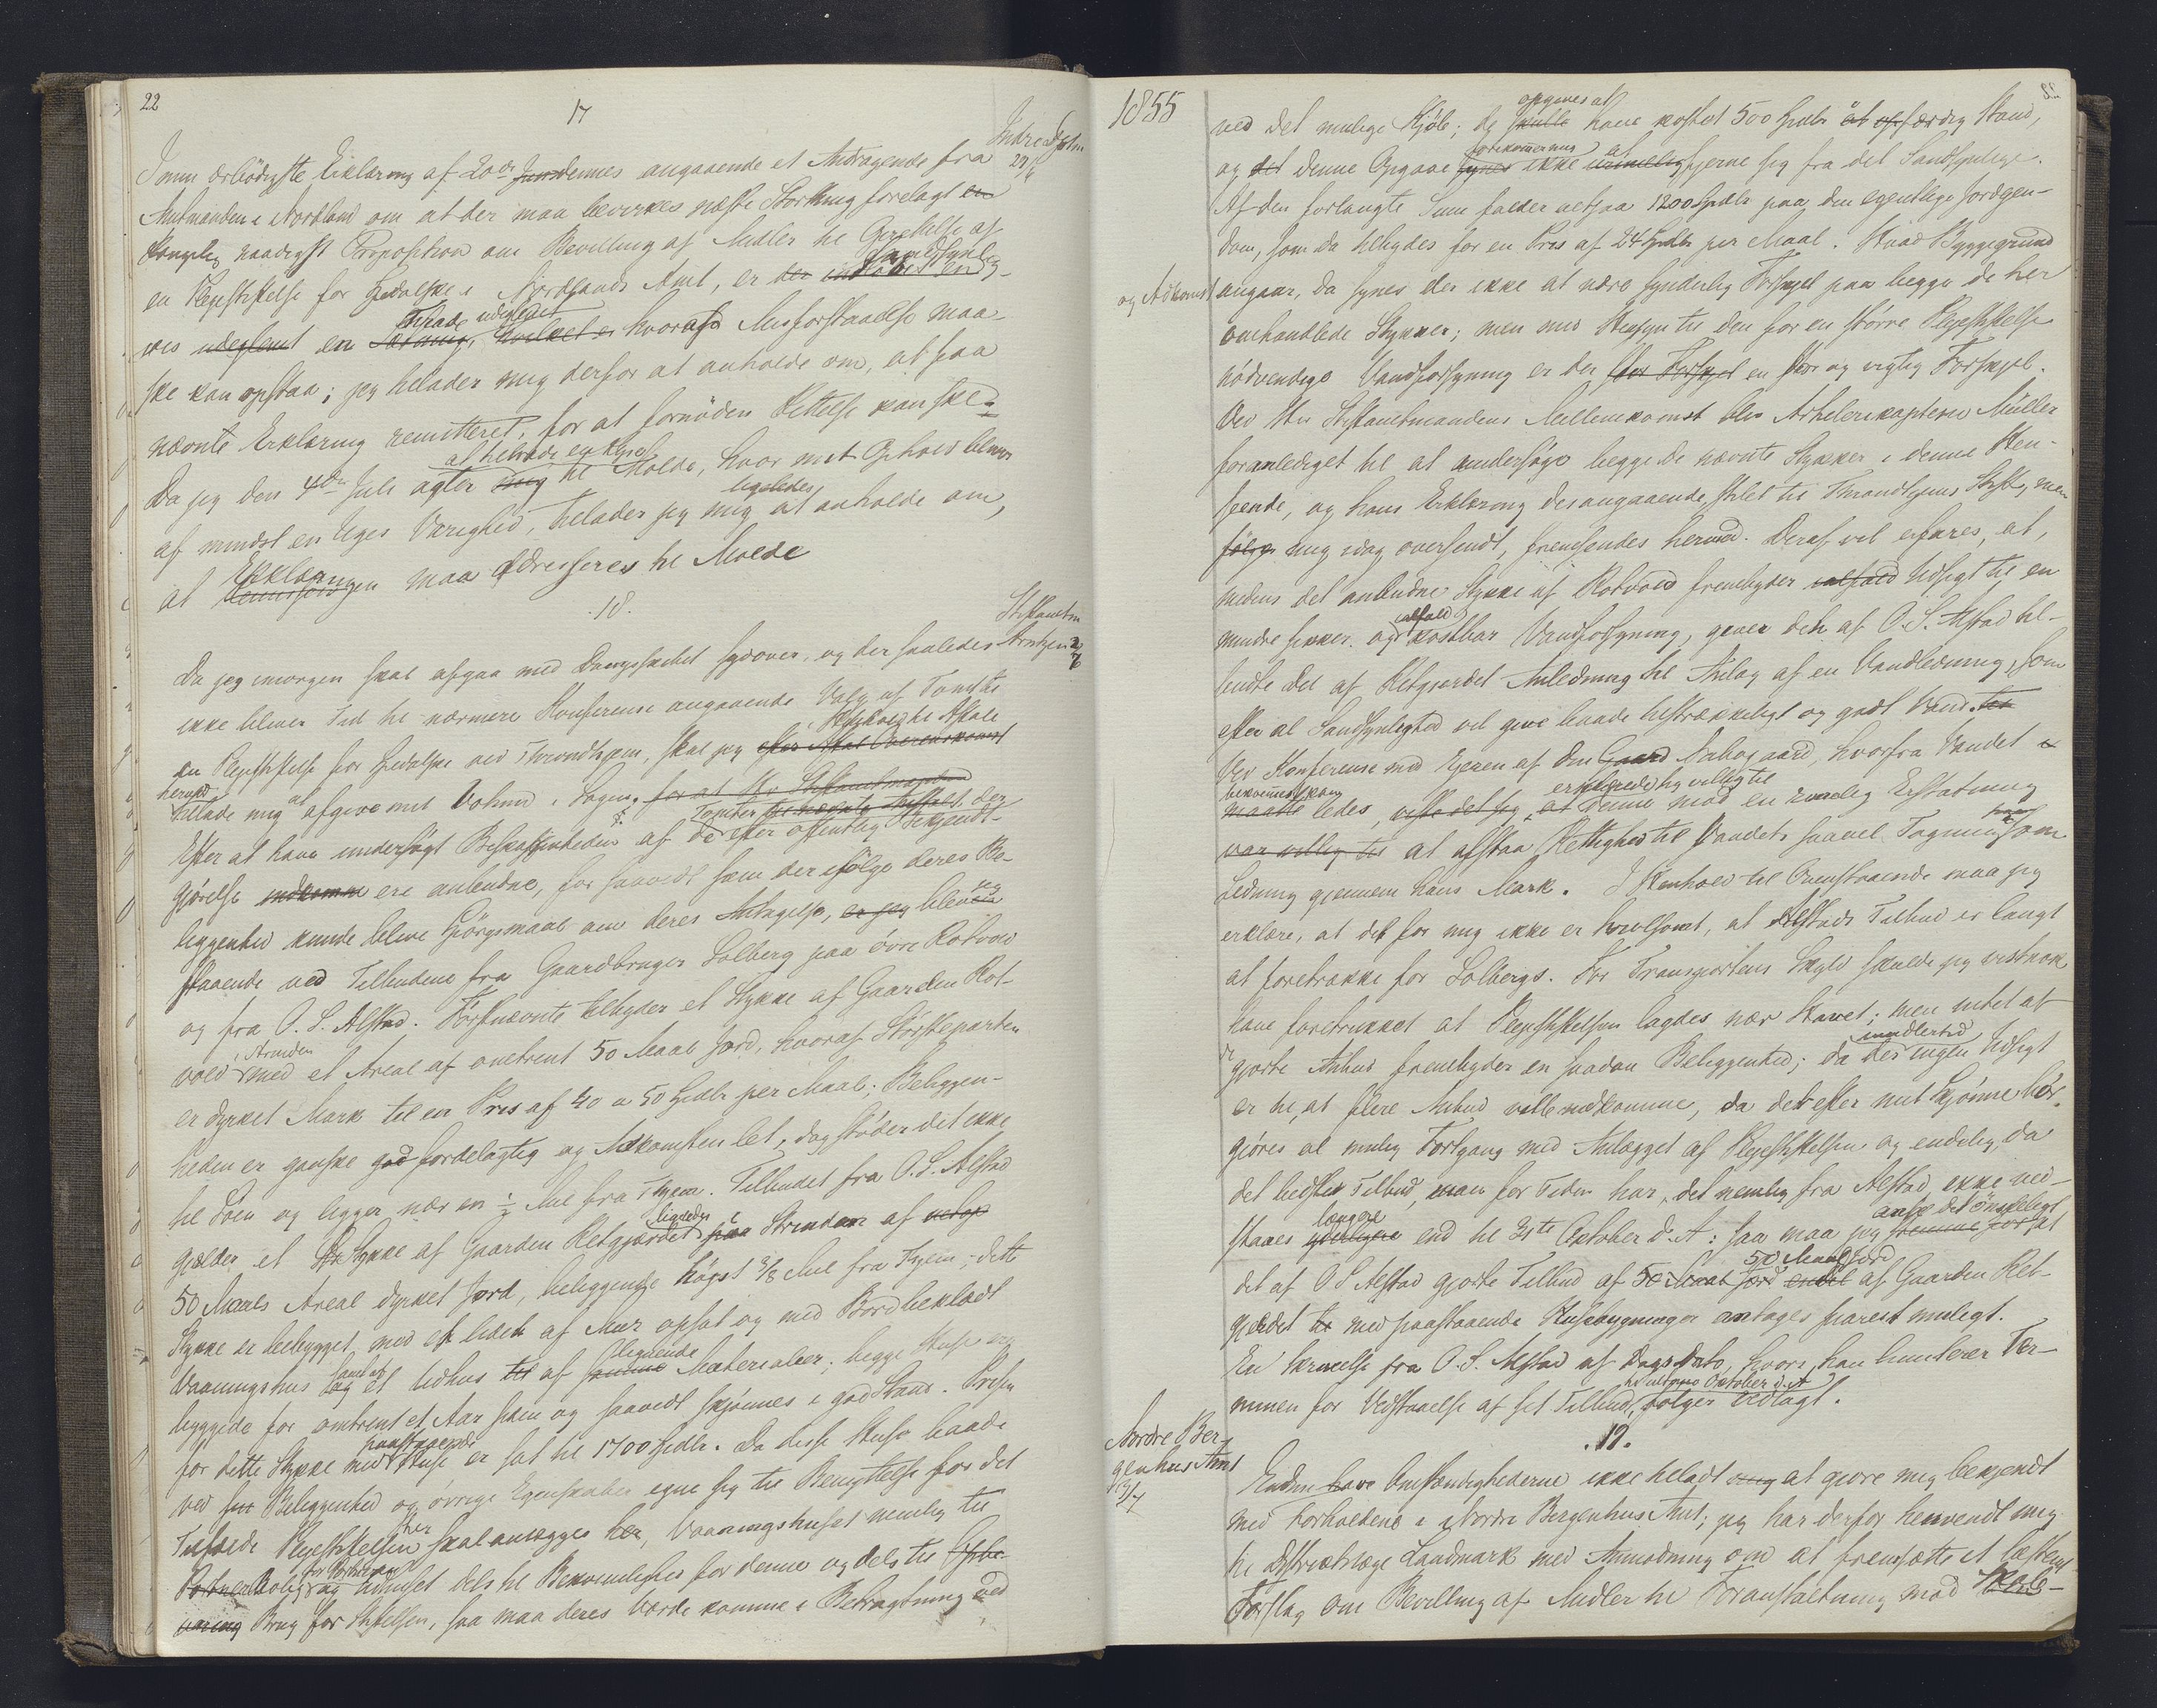 22
17
Indre Dptm
29/6
I min ærbödigste Erklæring af 20de dennes angaaende et Andragende fra
Amtmanden i Nordland om at der maa bevirkes næste Storthing forelagt en
kongelig naadigst Proposition om Bevilling af Midler til Oprettelse af
en Plejestiftelse for Spedalske i Nordlands Amt, er der sandsynlig-
vis udeglemt en hvoraf Misforstaaelse maa-
ske kan opstaa; jeg tillader mig derfor at anholde om, at faa
nævnte Erklæring remitteret, for at fornöden Rettelse kan ske.
Da jeg den 4de Juli agter at tiltræde en Rejse til Molde, hvor mit Ophold bliver
af mindst en Uges Varighed, tillader jeg mig ligeledes at anholde om,
at Erklæringen maa adresseres til Molde
18.
Stiftamtm
Arntzen 2/7
Da jeg imorgen skal afgaa med Dampskibet sydover, og der saaledes
ikke bliver Tid til nærmere Konference angaaende Valg af Tomt til
en Plejestiftelse for Spedalske ved Throndhjem, skal jeg i Henhold til Aftale
herved tillade mig at afgive mit Votum i Sagen, for at Hr Stiftamtmanden
Efter at have undersögt Beskaffenheden af de Tomter der efter offentlig Bekjendt-
gjörelse indkomne ere anbudne, for saavidt som der ifölge deres Be-
liggenhed kunde blive Spörgsmaal om deres Antagelse, er jeg bleven
staaende ved Tilbudene fra Gaardbruger Solberg paa övre Rotvold
og fra O. S. Alstad. Förstnævnte tilbyder et Stykke af Gaarden Rot-
vold i Strinden med et Areal af omtrent 50 Maal Jord, hvoraf Störsteparten
er dyrket Mark til en Pris af 40 a 50 Spdlr per Maal; Beliggen-
heden er ganske god fordelagtig og Adkomsten let, dog stöder det ikke
til Söen og ligger nær en ½ Mil fra Thjem. Tilbudet fra O. S. Alstad
gjælder et Stykke af Gaarden Retgjærdet ligeledes i Strinden af
50 Maals Areal dyrket Jord, beliggende högst 3/8 Mil fra Thjem; dette
Stykke er bebygget med et lidet af Mur opsat og med Bord beklædt
Vaaningshus samt et Udhus af lignende Materialier; begge Huse ere
byggede for omtrent et Aar siden og saavidt skjönnes i god Stand. Prisen
for dette Stykke med paastaaende Huse er sat til 1700 Spdlr. Da disse Huse baade
ved sin Beliggenhed og övrige Egenskaber egne sig til Benyttelse for det
Tilfælde Plejestiftelsen skal anlægges her, Vaaningshuset nemlig til
Bolig for Portneren og Udhuset dels til Bekvemmelighed for denne og dels til Opbe-
varing Brug for Stiftelsen, saa maa deres Værdi komme i Betragtning ved
1855
ved det mulige Kjöb; de opgives at have kostet 500 Spdlr i færdig Stand,
og denne Opgave forekommer mig ikke at fjerne sig fra det Sandsynlige.
Af den forlangte Sum falder altsaa 1200 Spdlr paa den egentlige Jordegen-
dom, som da tilbydes for en Pris af 24 Spdlr per Maal. Hvad Byggegrund
og Adkomst angaar, da synes der ikke at være synderlig Forskjel paa begge de her
omhandlede Stykker; men med Hensyn til den for en större Plejestiftelse
nödvendige Vandforsyning er der stor Forskjel en stor og vigtig Forskjel.
Ved Hr Stiftamtmandens Mellemkomst blev Artilerikaptein Müller
foranlediget til at undersöge begge de nævnte Stykker i denne Hen-
seende, og hans Erklæring desangaaende, stilet til Throndhjems Stift, men
mig idag oversendt, fremsendes hermed. Deraf vil erfares, at,
medens det anbudne Stykke af Rotvold frembyder Udsigt til en
mindre sikker og ialfald kostbar Vandforsyning, giver det af O. S. Alstad til-
budte Del af Retgjærdet Anledning til Anlæg af en Vandledning, som
efter al Sandsynlighed vil give baade tilstrækkeligt og godt Vand.
Ved Konference med Ejeren af den Gaard Nabogaard, hvorfra Vandet
bekvemmest kan ledes, erklærede sig villig til denne mod en rimelig Erstatning
var villig til at afstaa Rettighed til Vandets saavel Tagning som
Ledning gjennem hans Mark. I Henhold til Ovenstaaende maa jeg
erklære, at det for mig ikke er tvivlsomt, at Alstads Tilbud er langt
at foretrække for Solbergs. For Transportens Skyld skulde jeg vistnok
have foretrukket at Plejestiftelsen lagdes nær Havet; men intet af
de gjorte Anbud frembyder en saadan Beliggenhed; da der imidlertid ingen Udsigt
er til, at flere Anbud ville indkomme, da det efter mit Skjönne bör
gjöres al mulig Fortgang med Anlægget af Plejestiftelsen og endelig, da
det bedste Tilbud, man for Tiden har, det nemlig fra Alstad ikke ved-
staaes længere end til 31te Oktober d. A: saa maa jeg anse det önskeligt at
det af O. S. Alstad gjorte Tilbud af 50 Maal Jord af Gaarden Ret-
gjærdet med paastaaende Husebygninger antages snarest muligt.
En Skrivelse fra O. S. Alstad af Dags Dato, hvori han limiterer Ter-
minen for Vedstaaelse af sit Tilbud til ultimo Oktober d. A fölger vedlagt.
19.
Nordre Ber-
genhus Amt
3/7
Endnu have Omstændighederne ikke tilladt mig at gjöre mig bekjendt
med Forholdene i Nordre Bergenhus Amt; jeg har derfor henvendt mig
til Distriktslæge Landmark med Anmodning om at fremsætte et bestemt
Forslag om Bevilling af Midler til Foranstaltning mod